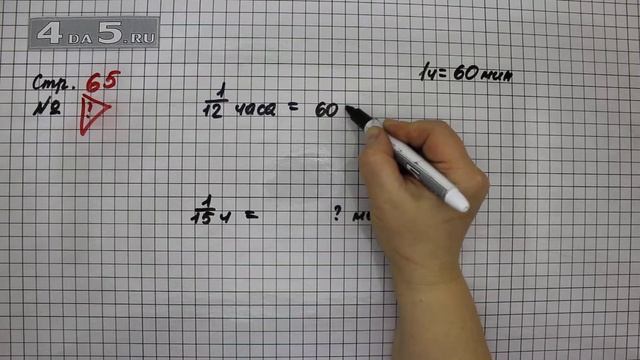 4 DA 5.RU
Стр. 65
№ ?
1ч = 60 мин
1/12 часа = 60
1/15 ч = ? м